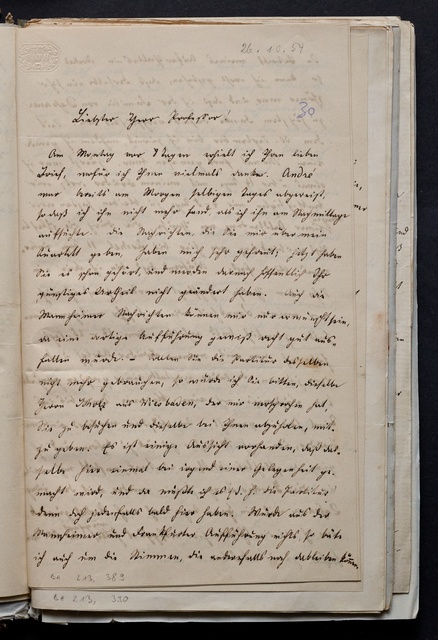 26.10.54
30
Liebster Herr Professor,
Am Montag vor 8 Tagen erhielt ich Ihren lieben
Brief, wofür ich Ihnen vielmals danke. André
war bereits am Morgen selbigen Tages abgereist,
so daß ich ihn nicht mehr fand, als ich ihn am Nachmittage
aufsuchte. Die Nachrichten, die Sie mir über mein
Quartett geben, haben mich sehr gefreut; jetzt haben
Sie es schon gehört, und werden darnach hoffentlich Ihr
günstiges Urtheil nicht geändert haben. Auch die
Mannheimer Nachrichten können mir nur erwünscht sein,
da eine artige Aufführung gewiß recht gut aus-
fallen würde. – Sollten Sie die Partitur desselben
nicht mehr gebrauchen, so würde ich Sie bitten, dieselbe
Herrn Scholz aus Wiesbaden, der mir versprochen hat,
Sie zu besuchen und dieselbe bei Ihnen abzuholen, mit-
zu geben. Es ist einige Aussicht vorhanden, daß das-
selbe hier einmal bei irgend einer Gelegenheit ge-
macht wird, und da müßte ich die Partitur
denn doch jedenfalls bald hier haben. Würde aus der
Mannheimer und Frankfurter Aufführung nichts so bäte
ich auch um die Stimmen, die andernfalls noch dableiben können
Ba 213, 389
Ba 213, 390